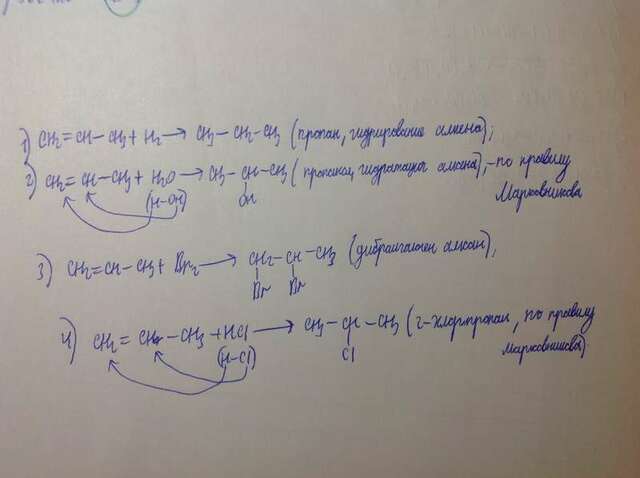 1) CH2=CH-CH3+H2→CH3-CH2-CH3 (пропан, гидрирование алкена);
2) CH2=CH-CH3+H2O→CH3-CH-CH3 (пропанол, гидратация алкена),-по правилу
(H-OH) OH Марковникова
3) CH2=CH-CH3+Br2→CH2-CH-CH3 (дибромгалоген алкан),
Br Br
4) CH2=CH-CH3+HCl→CH3-CH-CH3 (2-хлорпропан, по правилу
(H-Cl) Cl Марковникова)